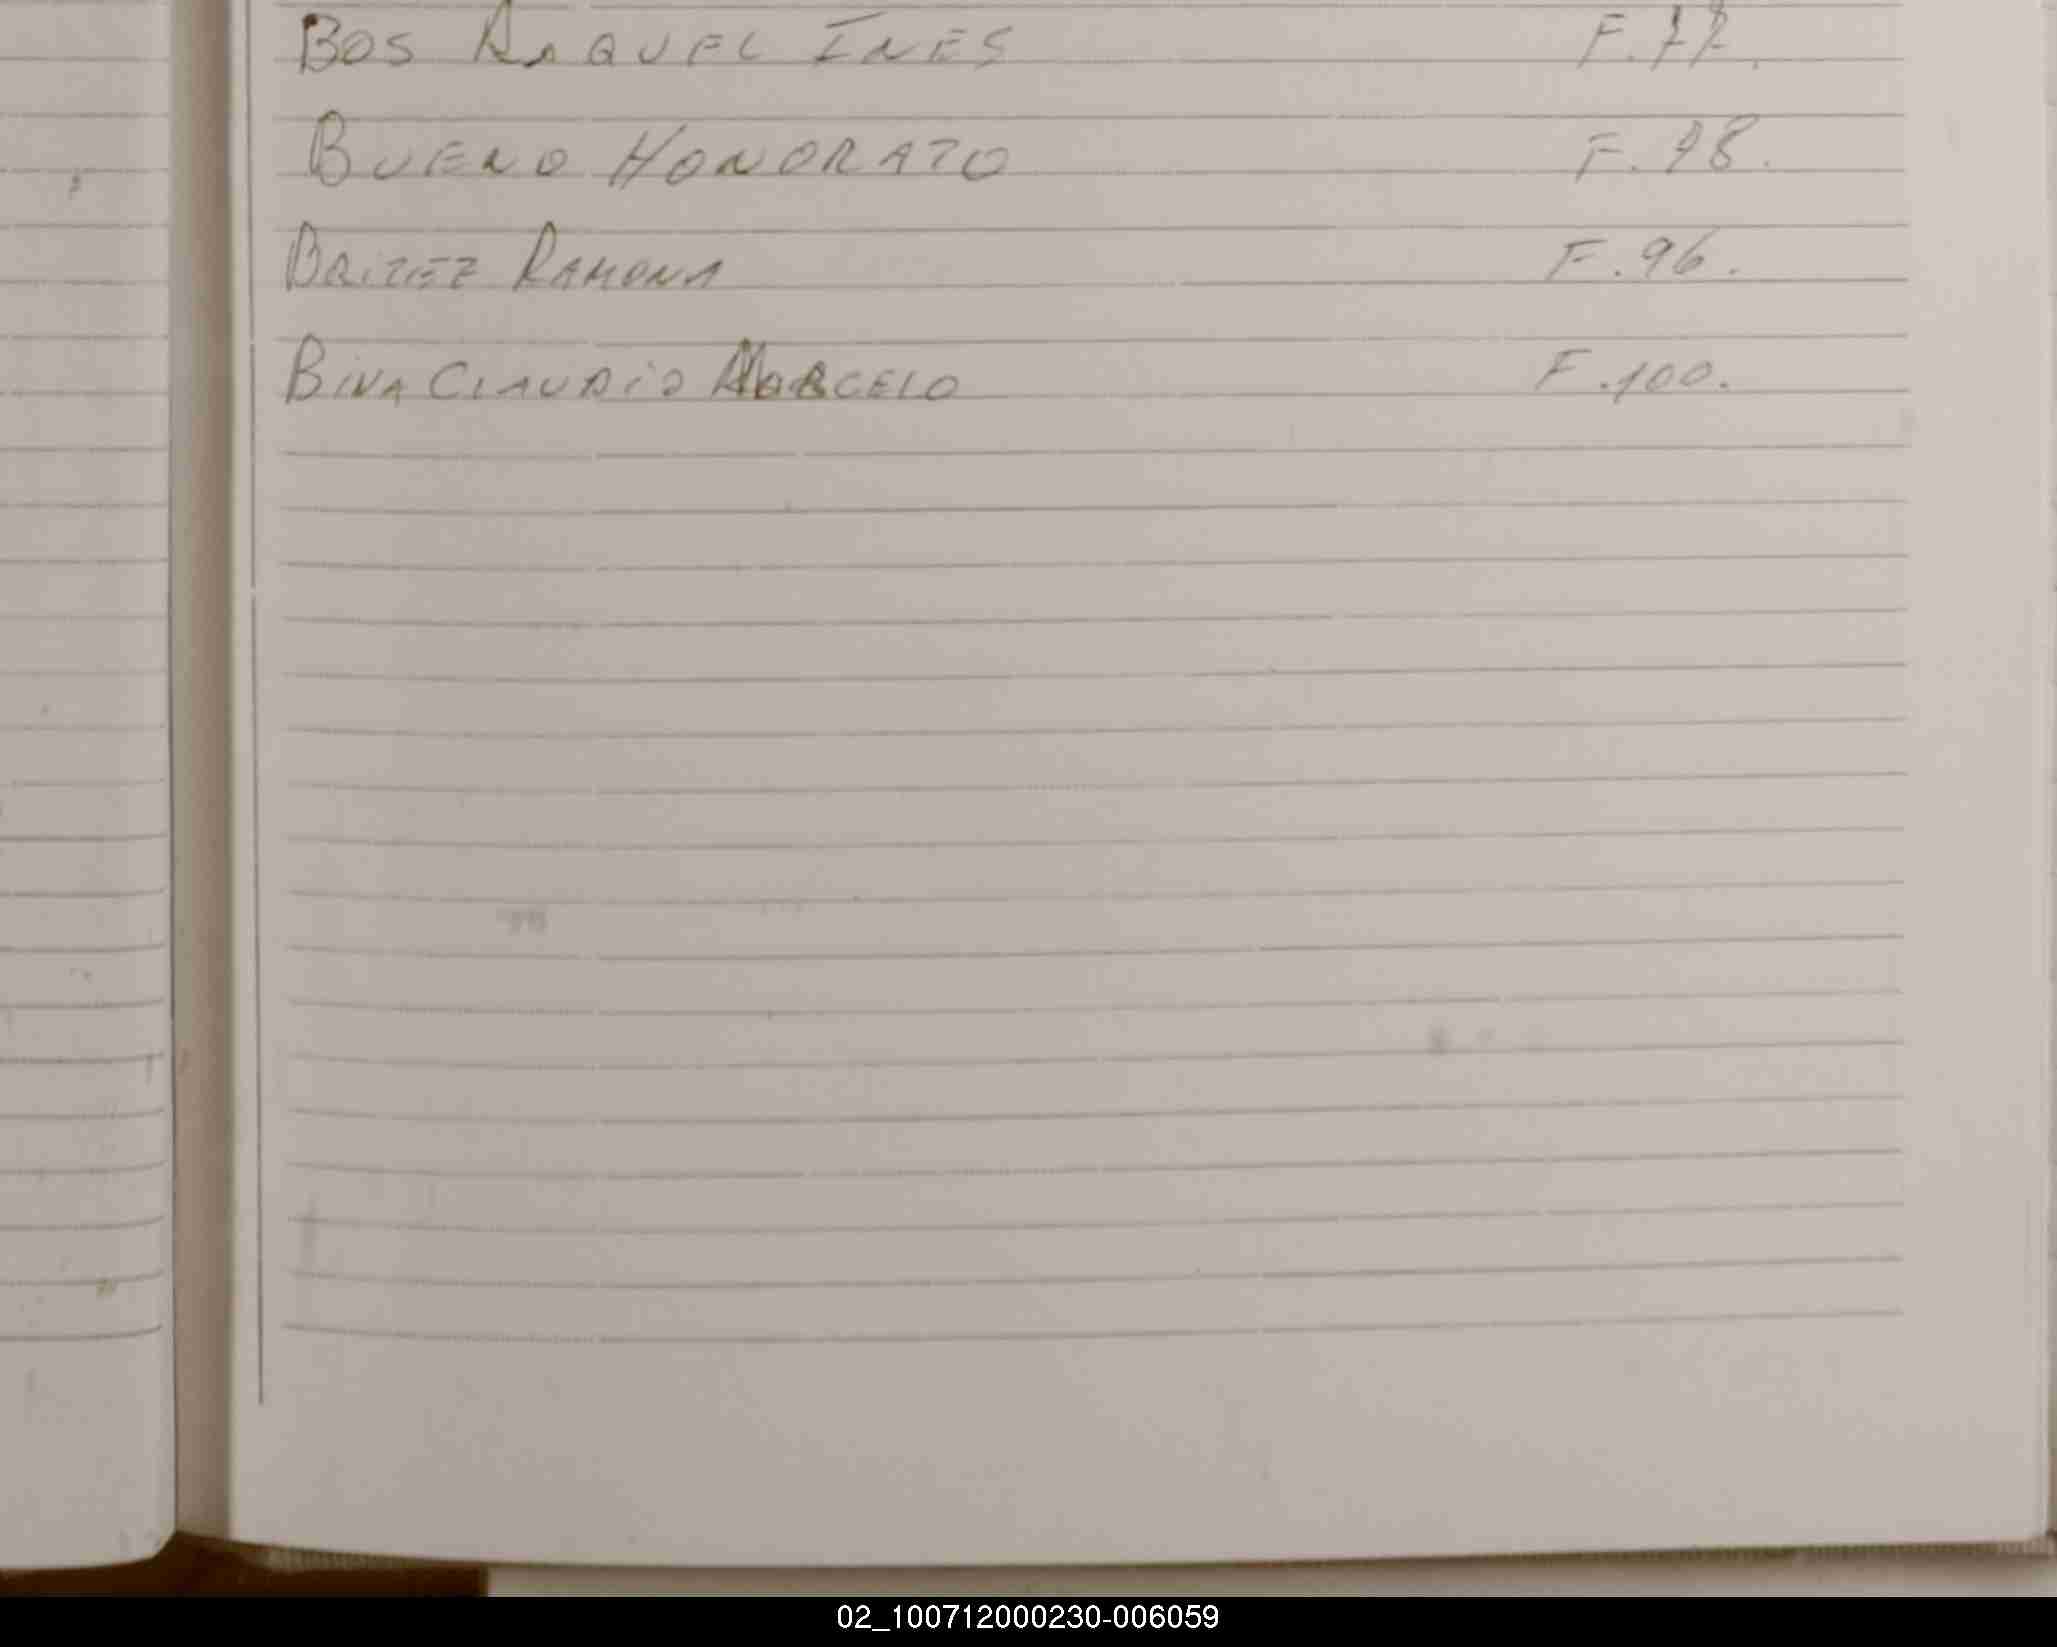 BOS RAQUEL INES F.77.
BUENO HONORATO F.78.
BRITEZ RAMONA F.96.
BINA CLAUDIO MARCELO F.100.
02_100712000230-006059